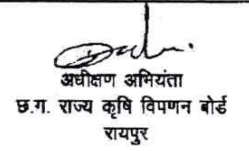 अधीक्षण अभियंता
छ.ग. राज्य कृषि विपणन बोर्ड
रायपुर